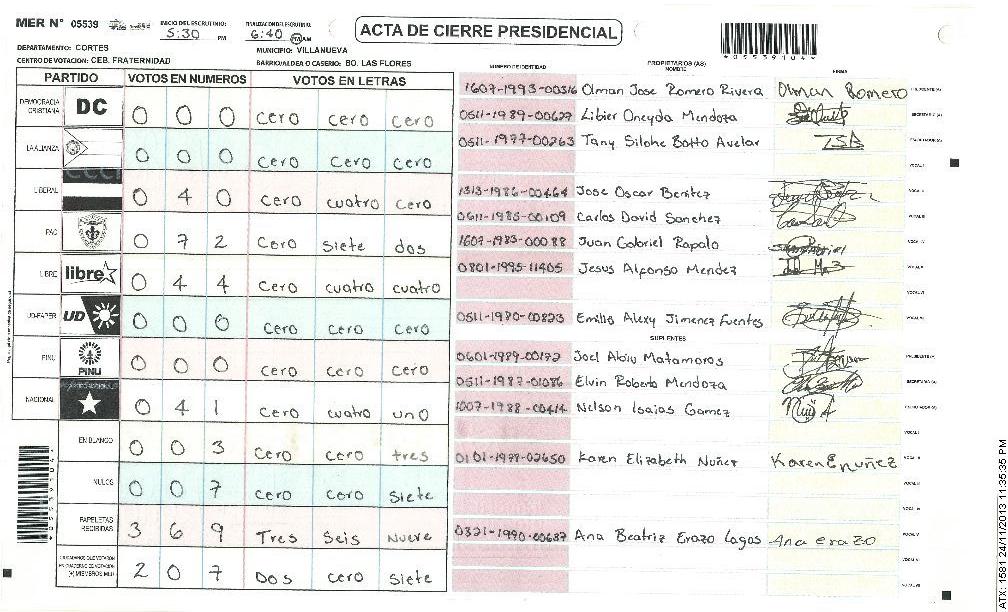 MER N° 05539
INICIO DEL ESCRUTINIO: 5:30 PM
FINALIZACION DEL ESCRUTINIO: 6:40 PM AM
ACTA DE CIERRE PRESIDENCIAL
*05539104*
DEPARTAMENTO: CORTES
MUNICIPIO: VILLANUEVA
CENTRO DE VOTACION: CEB. FRATERNIDAD
BARRIO/ALDEA O CASERIO: BO. LAS FLORES
PARTIDO VOTOS EN NUMEROS VOTOS EN LETRAS
DEMOCRACIA CRISTIANA DC 0 0 0 cero cero cero
LA ALIANZA 0 0 0 cero cero cero
LIBERAL 0 4 0 cero cuatro cero
PAC 0 7 2 cero siete dos
LIBRE libre 0 4 4 cero cuatro cuatro
UD-FAPER UD 0 0 0 cero cero cero
PINU PINU 0 0 0 cero cero cero
NACIONAL 0 4 1 cero cuatro uno
EN BLANCO 0 0 3 cero cero tres
NULOS 0 0 7 cero cero siete
PAPELETAS RECIBIDAS 3 6 9 Tres Seis Nueve
CIUDADANOS QUE VOTARON EN CUADERNO DE VOTACION (+) MIEMBROS MER 2 0 7 Dos cero siete
NUMERO DE IDENTIDAD PROPIETARIOS (AS) NOMBRE FIRMA
1607-1993-00316 Olman Jose Romero Rivera Olman Romero
0511-1989-00627 Libier Oneyda Mendoza
0511-1977-00263 Tany Silohe Botto Avelar TSB
1313-1986-00464 Jose Oscar Benitez
0611-1985-00109 Carlos David Sanchez
1607-1983-00088 Juan Gabriel Rapalo
0801-1995-11405 Jesus Alfonso Mendez
0511-1980-00823 Emilio Alexy Jimenez Fuentes
SUPLENTES
0601-1989-00172 Joel Abiu Matamoros
0511-1987-01086 Elvin Roberto Mendoza
1007-1988-00414 Nelson Isaias Gomez
0101-1979-02650 Karen Elizabeth Nuñez Karen E nuñez
0321-1990-00687 Ana Beatriz Erazo Lagos Ana erazo
ATX: 1581 24/11/2013 11:35:35 PM